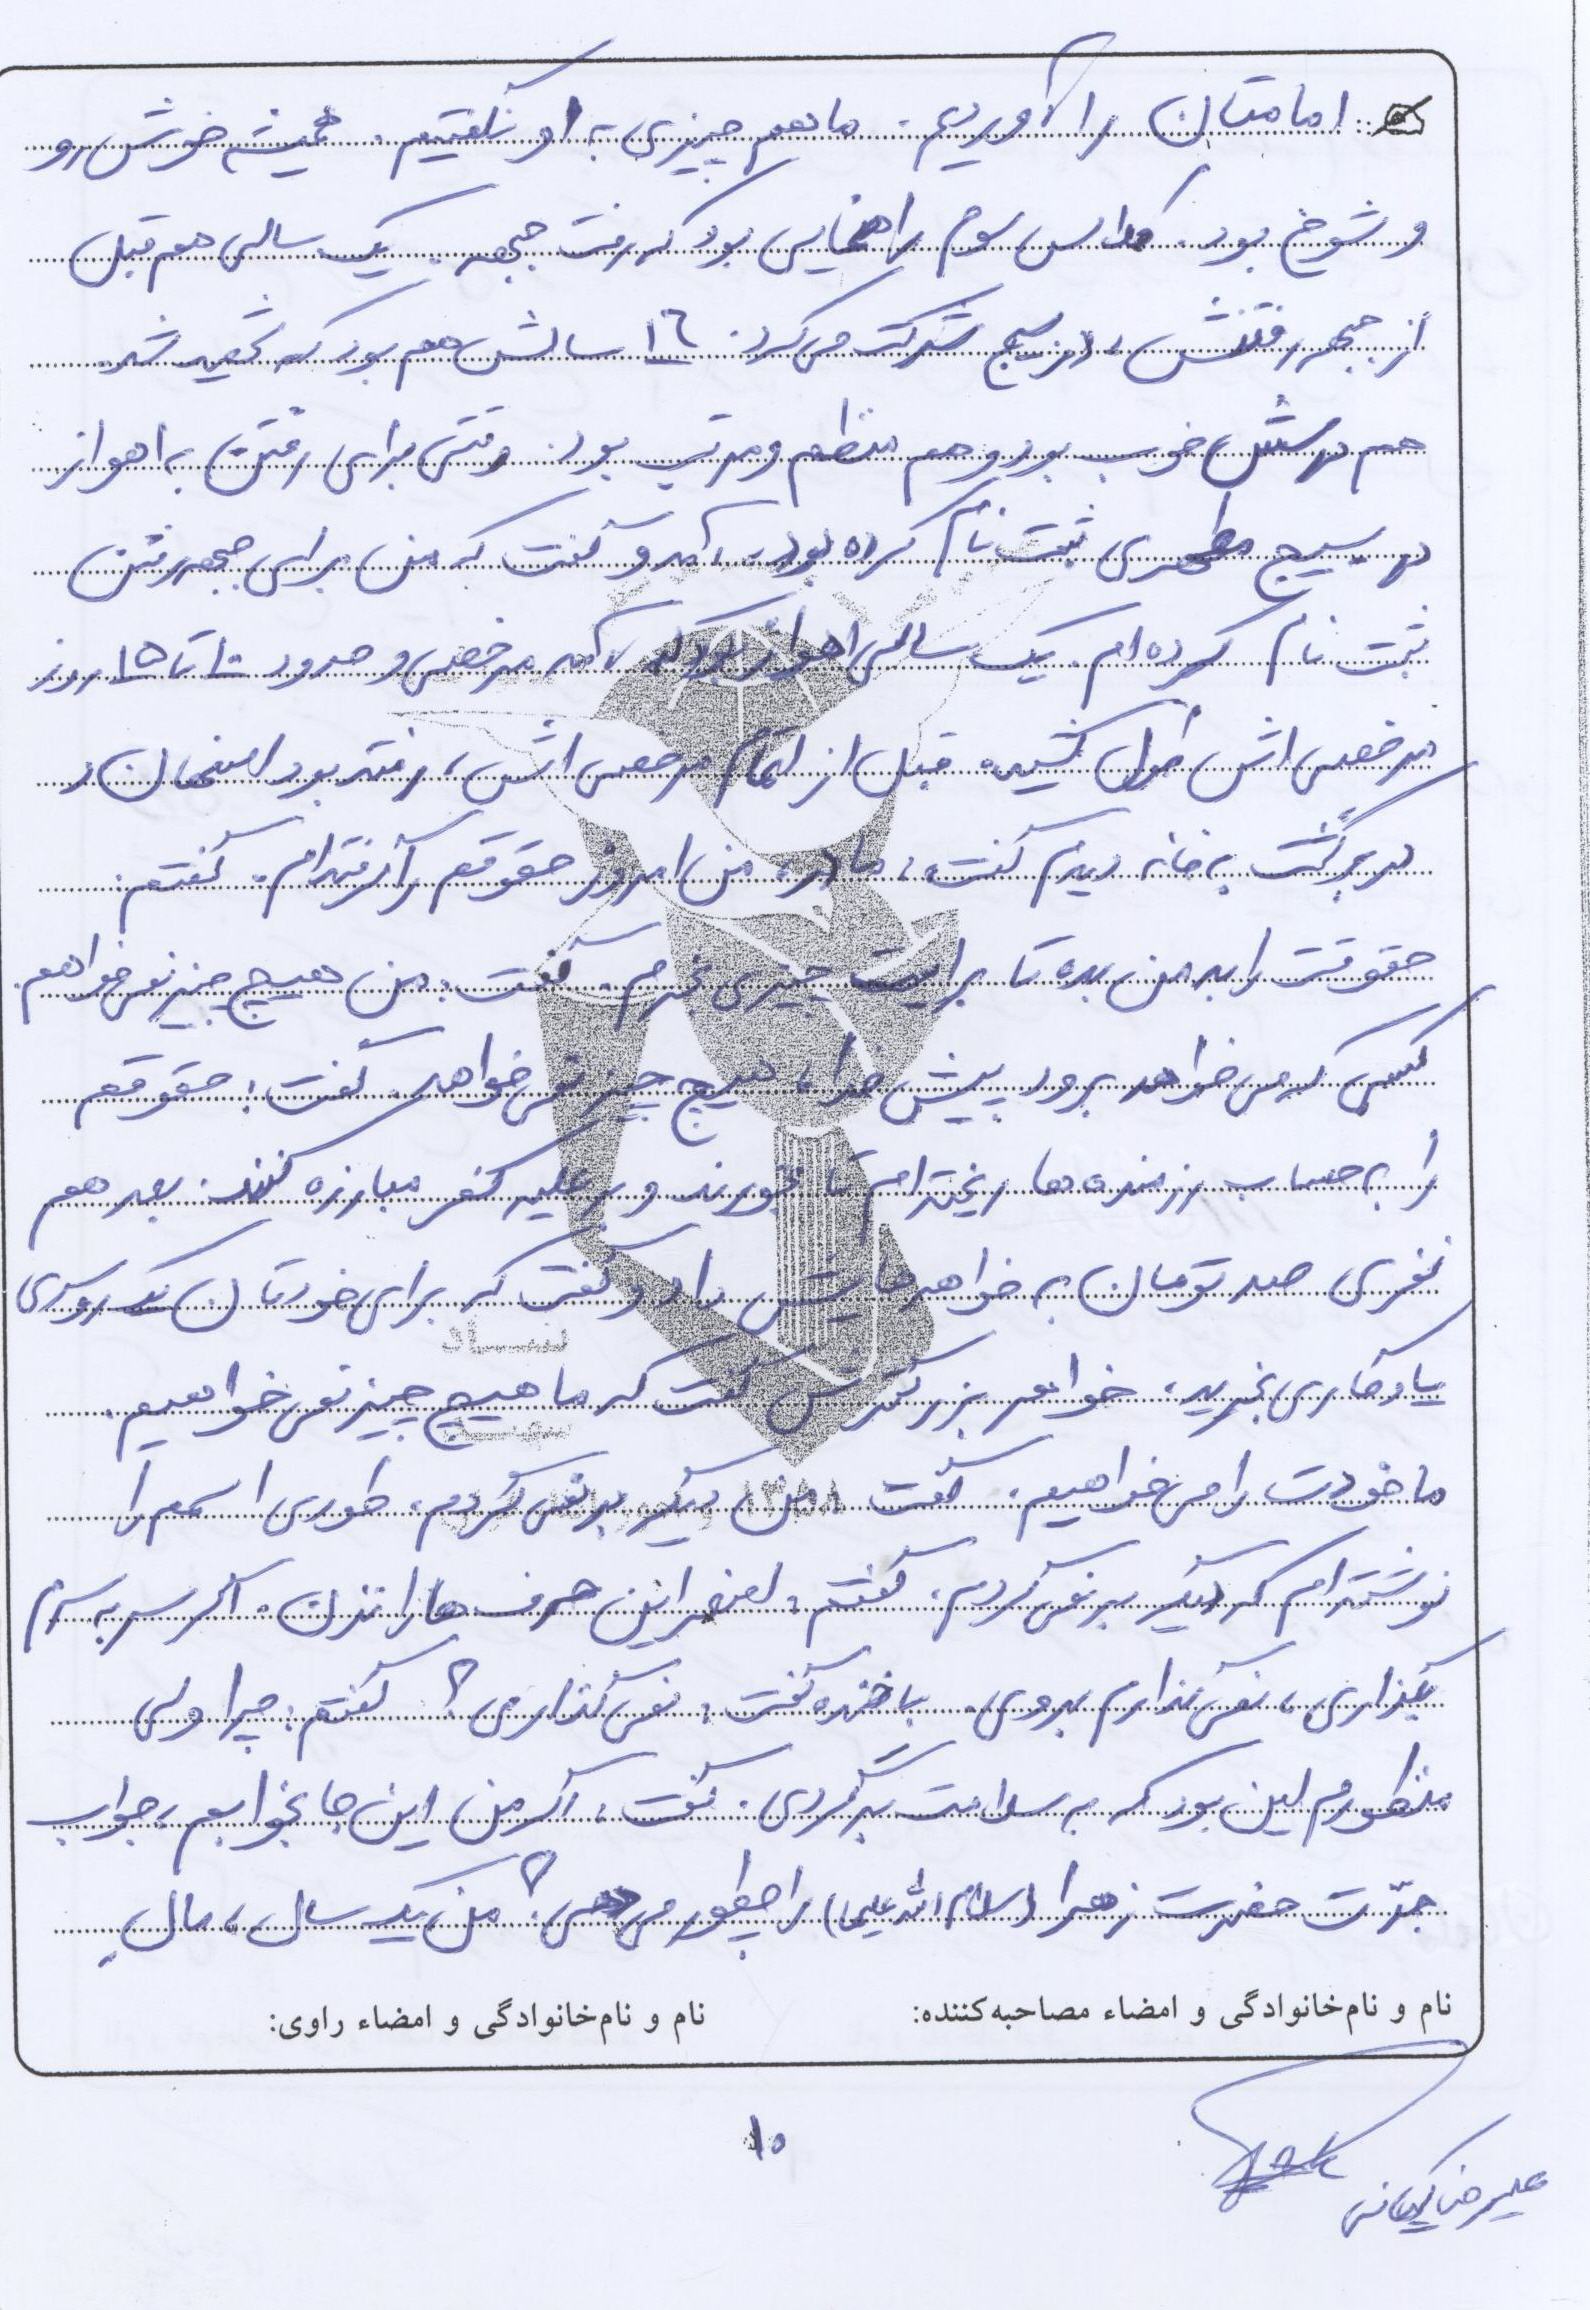 امامتان را آوردیم. ما هم چیزی به او نگفتیم. همیشه خوش رو
و شوخ بود. کلاس سوم راهنمایی بود که رفت جبهه. یک سالی هم قبل
از جبهه رفتنش، در بسیج شرکت می کرد. ۱۶ سالش هم بود که شهید شد.
هم درسش خوب بود و هم منظم و مرتب بود. وقتی برای رفتن به اهواز
در بسیج مطهری ثبت نام کرده بود، آمد و گفت که من برای جبهه رفتن
ثبت نام کرده ام. یک سالی اهواز بود که آمد مرخصی و حدود ۱۰ تا ۱۵ روز
مرخصی اش طول کشید. قبل از اتمام مرخصی اش، رفته بود اصفهان و
در برگشت به خانه دیدم گفت: مادر، من امروز حقوقم را گرفته ام. گفتم:
حقوقت را به من بده تا برایت چیزی بخرم. گفت: من هیچ چیز نمی خواهم.
کسی که می خواهد برود پیش خدا، هیچ چیز نمی خواهد. گفت: حقوقم
را به حساب رزمنده ها ریخته ام تا بخورند و بر علیه کفر مبارزه کنند. بعد هم
نفری صد تومان به خواهرهایش داد و گفت که برای خودتان یک روسری
یادگاری بخرید، خواهر بزرگترش گفت که ما هیچ چیز نمی خواهیم.
ما خودت را می خواهیم. گفت من دیگر بر نمی گردم، طوری اسمم را
نوشته ام که دیگر بر نمی گردم. گفتم: اصغر این حرف ها را نزن. اگر سر به سرم
بگذاری، نمی گذارم بروی. با خنده گفت: نمی گذاری؟ گفتم: چرا ولی
منظورم این بود که به سلامت برگردی. گفت: اگر من این جا بخوابم، جواب
جدّت حضرت زهرا (سلام الله علیها) را چطور می دهی؟ من یک سال، مالِ
نام و نام خانوادگی و امضاء مصاحبه کننده: نام و نام خانوادگی و امضاء راوی:
۱۰
علیرضا
بنیاد
شهید
۱۳۵۸